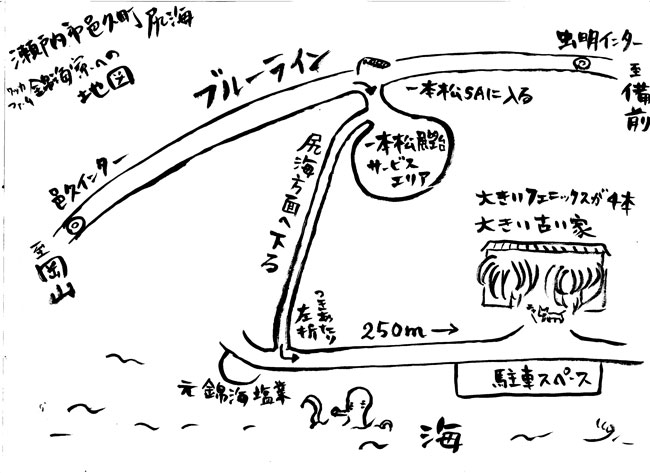 瀬戸内市邑久町尻海
錦海家への
地図
ブルーライン
虫明インター
至備前
一本松SAに入る
一本松展望台
サービス
エリア
邑久インター
至岡山
尻海方面へ下る
大きいフェニックスが4本
大きい古い家
つきあたり
左折
250m→
駐車スペース
元 錦海塩業
海